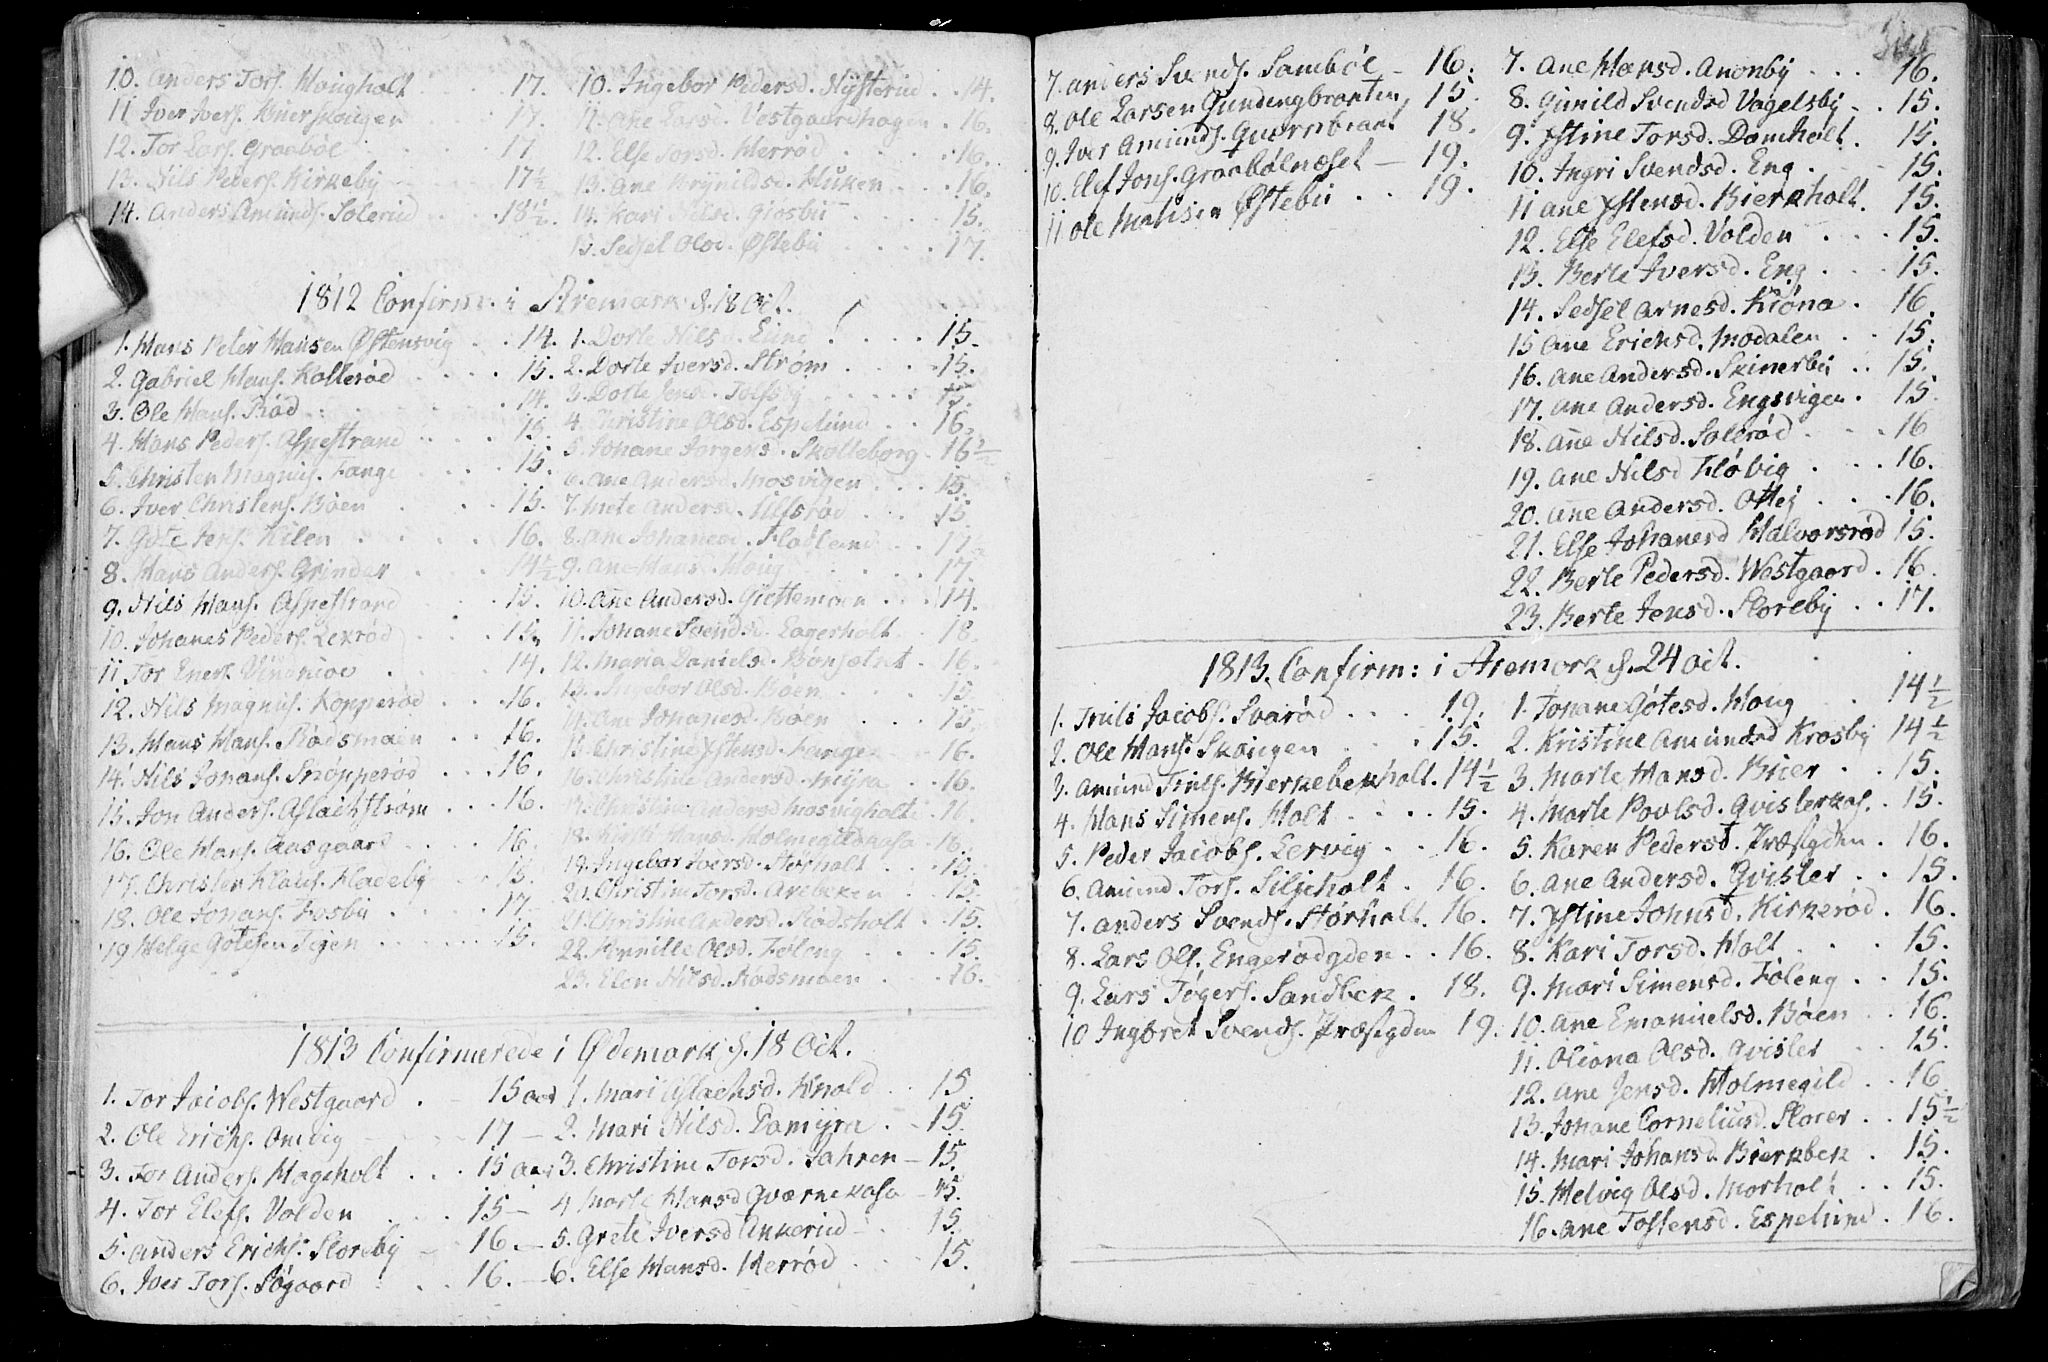 10. Anders Tors. Haugholt . . . 17.
11 Iver Ivers. . . 17.
12. Tor Lars. Graabøl . . . 17
13. Nils Peders. Kirkeby . . 17½
14. Anders Amunds. Solerud . . 18½.
10. Ingebor Pedersd. Nysterud . . 14.
11. Ane Larsd. Vestgaardhagen . 16.
12. Else Torsd. Herrød . . . 16.
13. Ane Brynildsd. Huken . . . 16.
14. Kari Nilsd. Giosbu . . . 15.
15. Sedsel Olsd. Østebu . . . 17.
1812 Confirm: i Aremark d. 18 Oct.
1. Hans Peter Hansen Østensvig . . 14.
2. Gabriel Hans. Kollerød . . . 15.
3. Ole Hans. Rød . . . 14.
4. Hans Peders. Aspestrand . . . 15.
5. Christen Magnus. Lange . . . 15.
6. Iver Christens. Bøen . . . 15.
7. Gøte Jens. Kilen . . . 16.
8. Hans Anders. Grinder . . . 14½
9. Nils Hans. Aspestrand . . . 15.
10. Johanes Peders. Lexrød . . . 15.
11 Tor . . . 14.
12. Nils Magnus. Kopperød . . . 16.
13. Hans Hans. Rødsmoen . . 16.
14. Nils Johans. Skøpperød . . . 16.
15. Jon Anders. Aslachstrøm . . . 16.
16. Ole Hans. Aasgaard . . . 16.
17. Christen Klaus. Kladeby . . 15.
18. Ole Johans. Fosby . . . 17.
19 Helge Gøtesen Tigen . . . 15.
1. Dorte Nilsd. Lund . . . 15.
2. Dorte Iversd. Strøm . . . 15.
3. Dorte Jensd. Tolfsby . . . 15.
4. Christine Olsd. Espelund . . 16.
5. Johane Jørgensd. Skolleborg . 16½
6. Ane Andersd. Mosvigen . . . 15.
7. Mete Andersd. . . . 15
8. Ane Johanesd. Fladlund . . 17½
9. Ane Hansd. Houg . . . 17.
10. Ane Andersd. Giettemoen . . . 14.
11. Johane Svendsd. Lagerholt . 18.
12. Maria Danielsd. Bønsætret . 16.
13. Ingebor Olsd. Bøen . . . 15.
14. Ane Johanesd. Bøen . . . 15.
15. Christine Ystensd. Lange . . 16.
16. Christine Andersd. Myra . . 16.
17. Christine Andersd Mosvigholte . 16.
18. Hansd. Holmegildaasa . 16.
19. Ingebor Iversd. Størholt . . . 15.
20. Christine Torsd. Arebeken . 15.
21. Christine Andersd. Rødsholt . . 15.
22. Pernille Olsd. Foleng . . . 15.
23. Elen Nilsd. Rødsmoen . . . 16.
1813 Confirmerede i Ødemark d. 18 Oct.
1. Tor Jacobs. Westgaard . . 15 aar
2. Ole Erichs. Onvig . . . 17 –
3. Tor Anders. Hageholt . . . 15 aar
4. Tor Elefs. Volden . . . 15 –
5. Anders Erichs. Storeby – 16. –
6. Iver Tors. Søgaard . . . 16. –
1. Mari Aslachsd. Knold . . 15.
2. Mari Nilsd. Damyra . . 15.
3. Christine Torsd. Jahren – 15.
4 Marte Hansd Qværnekasa – 15.
5. Grete Iversd Ankerud – 15.
6. Else Hansd. Herrød . . . 15.
7. Anders Svends. Sambøl – 16.
8. Ole Larsen Gundengbraaten, 15.
9. Iver Amunds. Quernbraat 18.
10. Elef Jons. Graabølnæset – 19.
11 Ole Matisen Østebu . . 19.
7. Ane Hansd. Anonby . . . 16.
8. Gunild Svendsd Vagelsby . . 15.
9. Ystine Torsd. Damholt . 15.
10. Ingri Svendsd. Eng . . – 15.
11 Ane Ystensd. Bierkholt. 15.
12. Else Elefsd. Volden . . . 15.
13. Berte Iversd. Eng . . . 15.
14. Sedsel Arnesd. Kiøna . 16.
15 Ane Erichsd. Modalen . . 15.
16. Ane Andersd. Skinerby . . 15.
17. Ane Andersd. Engsvigen . 15.
18. Ane Nilsd. Solerød . . . 16
19. Ane Nilsd Fløvig . . . 16.
20. Ane Andersd. Ottej . . . 16.
21. Else Johanesd Halvorsrød 15.
22. Berte Pedersd. Westgaard . 16.
23. Berte Jensd. Storeby . . 17.
1813. Confirm: i Aremark d. 24 Oct.
1. Truls Jacobs. Svarød . . . 19.
2. Ole Hans. Skøugen . . . 15.
3. Amund Truls. Bierkebekholt. 14½
4. Hans Simens. Holt . . . . 15.
5. Peder Jacobs. Lervig . . 16.
6. Amund Tors. Siljeholt . 16.
7. Anders Svends. Størholt. 16.
8. Lars Ols. Engerødgden . . 16.
9. Lars Tøgers. Sandbek . 18.
10 Ingbret Svends. Præstgden 19.
1. Johane Gøtesd. Houg . . 14½
2. Kristine Amundsd Krosby 14½
3. Marte Hansd. Buer . . 15.
4. Marte Povlsd. Qvislerkas. . 15.
5. Karen Pedersd. Præstgden . 16.
6. Ane Andersd. Qvisler . . 15.
7. Ystine Johnsd. Kirkerød . 16.
8. Kari Torsd. Holt . . . 15.
9. Mari Simensd. Foleng . . 15.
10. Ane Emanuelsd. Bøen . . 16.
11. Oliana Olsd. Qvisler . . 15.
12. Ane Jensd. Holmegild . . 16
13. Johane Corneliusd. Storer . . 15½
14. Mari Johansd. Bierkbek . 15.
15. Helvig Olsd. Morholt . . 15.
16. Ane Tostensd. Espelund . 16.